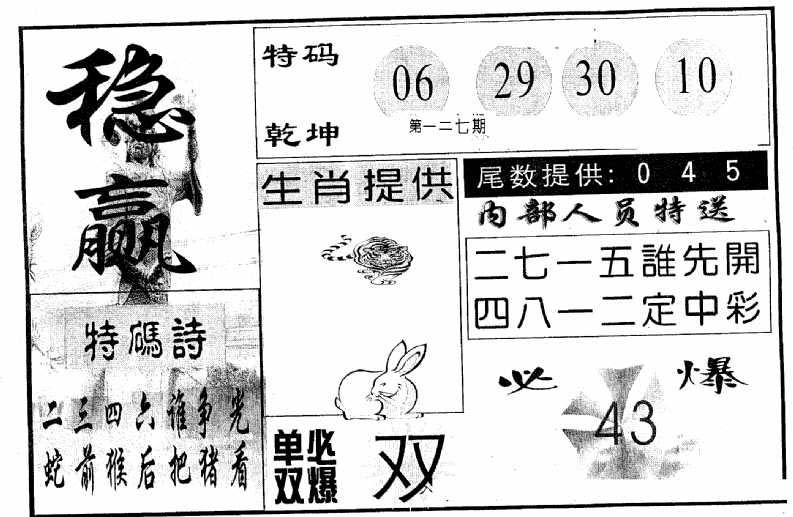 稳赢
特码
乾坤
06 29 30 10
第一二七期
生肖提供
尾数提供: 0 4 5
内部人员特送
二七一五誰先開
四八一二定中彩
特碼詩
二三四六谁争光
蛇前猴后把猪看
单双
必爆
双
必爆
43